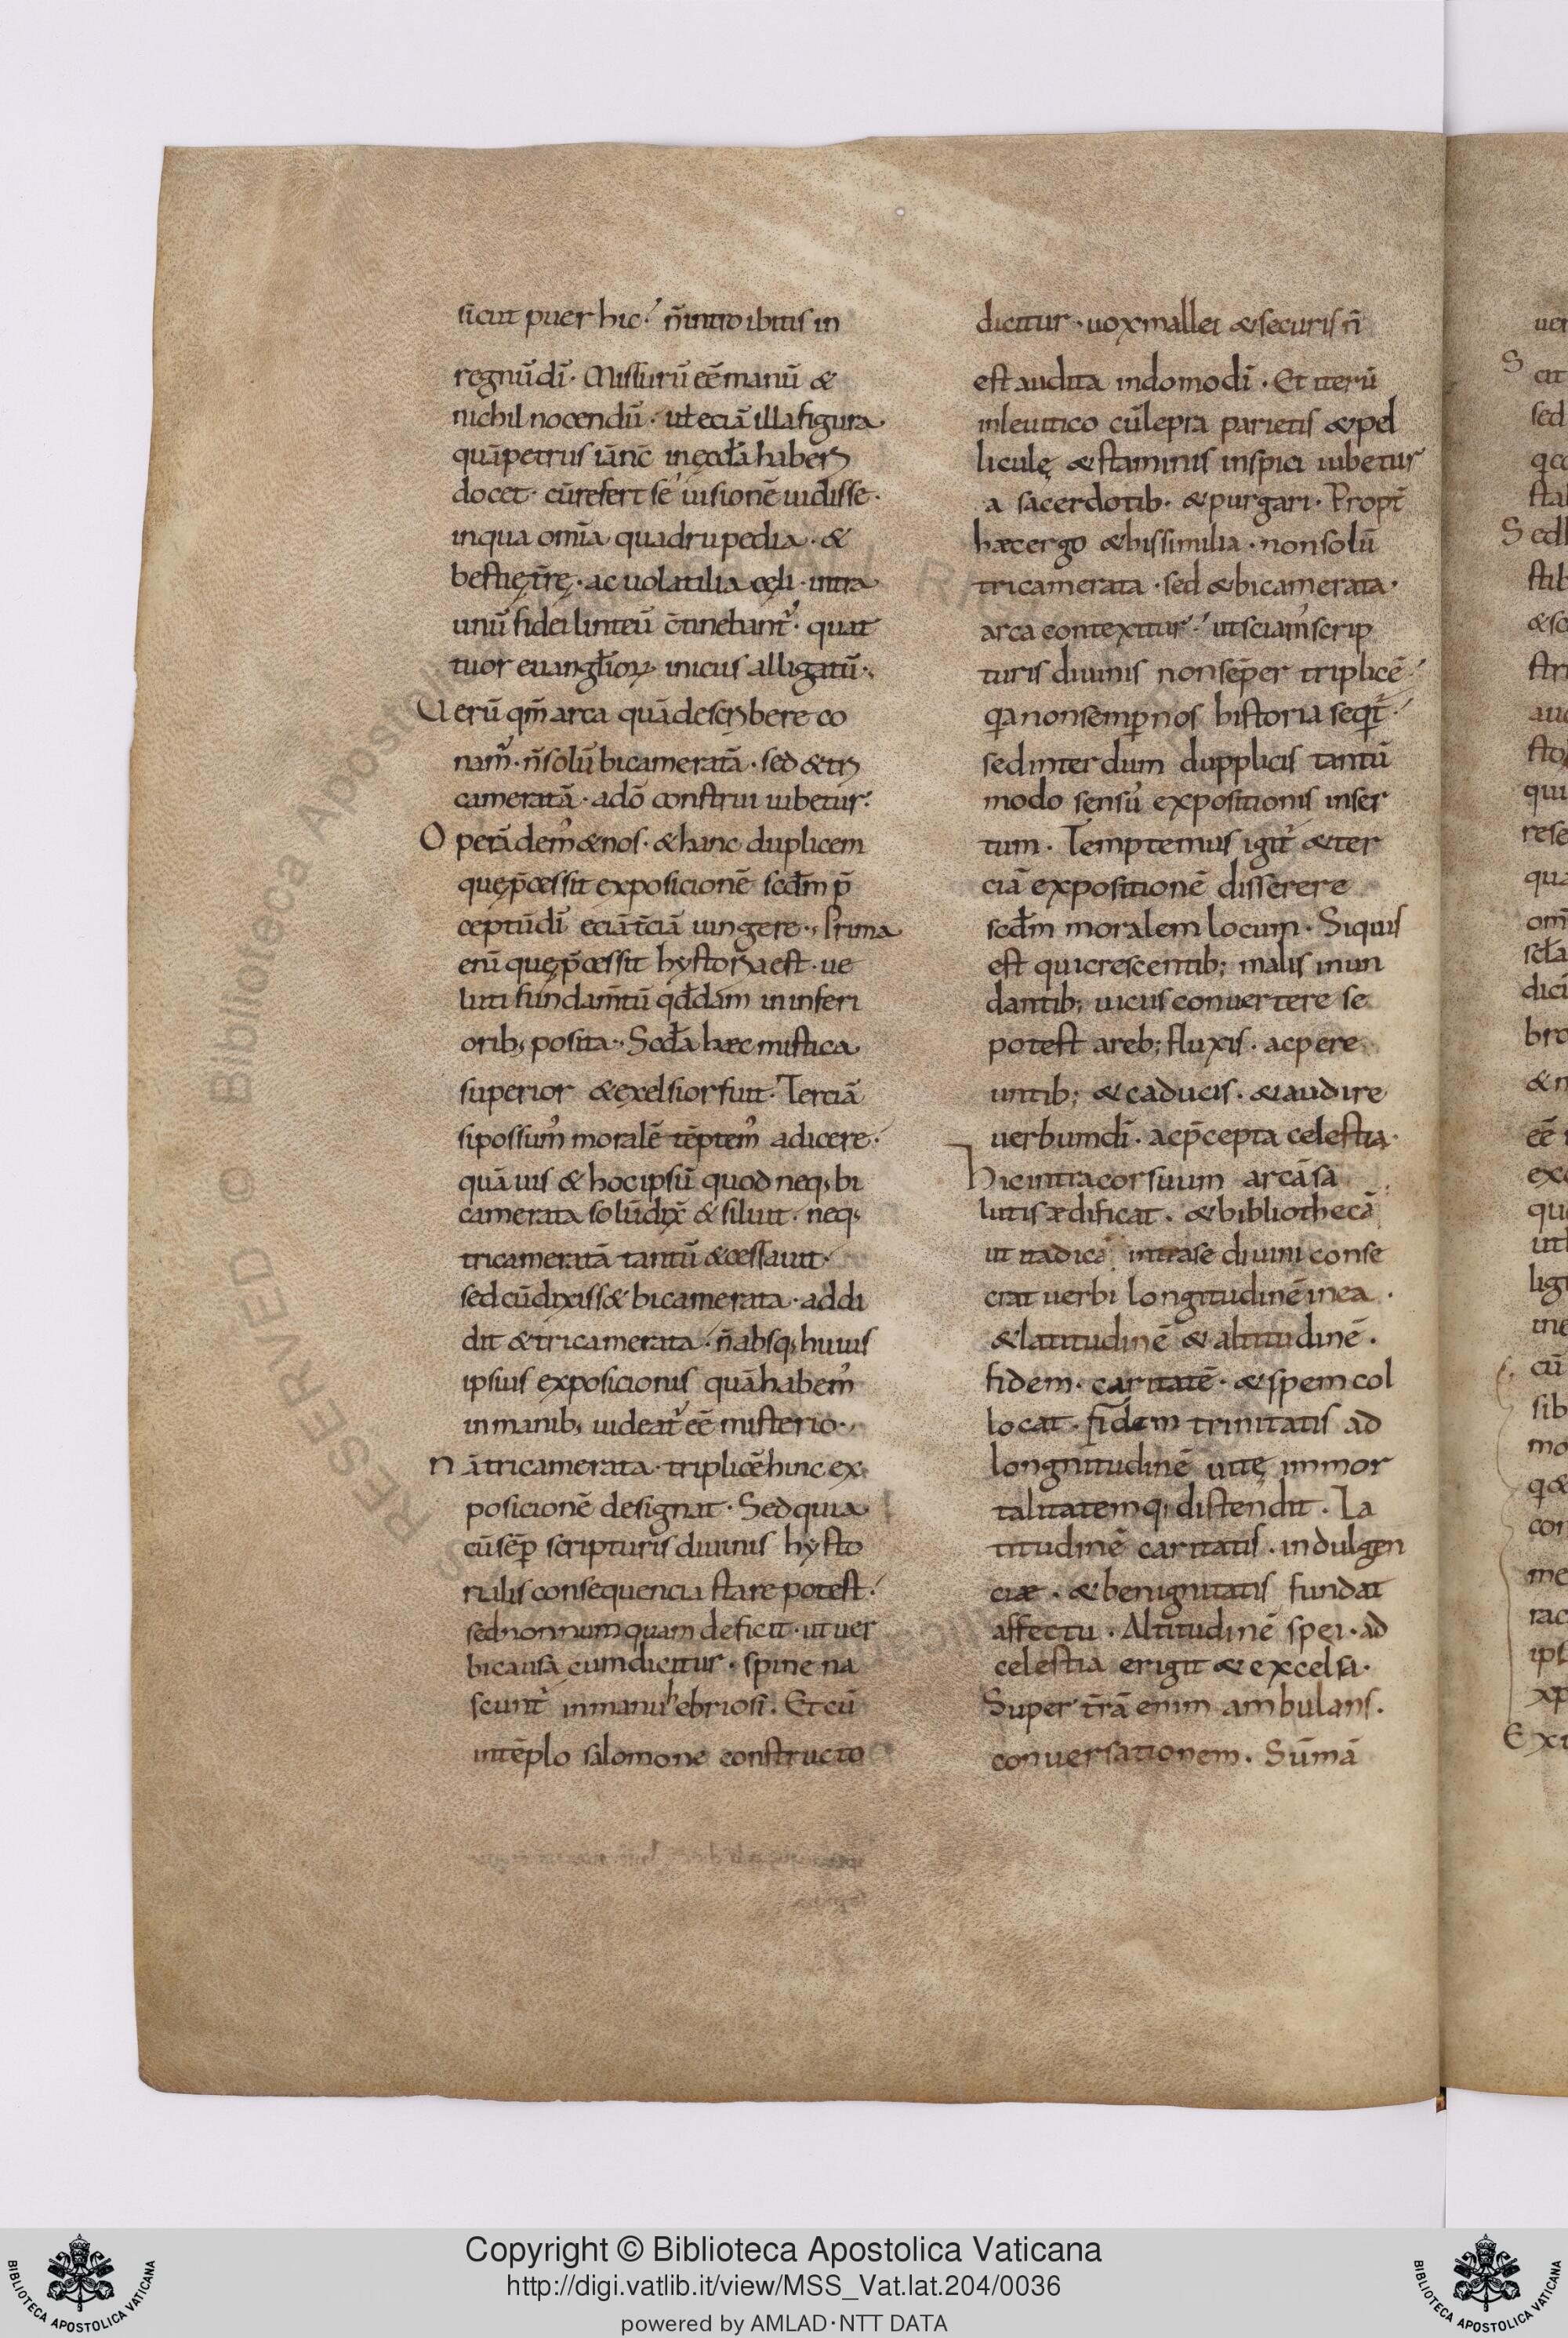 sicut puer hic. n̄ intro ibitis in
regnū dī. Missurū eē manū &
nichil nocendū. ut eciā illa figura
quā petrus iānc̄ in ęccła haberi
docet. cū refert se uisionē uidisse.
in qua om̄ia quadrupedia. &
bestię t̄rę. ac uolatilia cęli. intra
unū fidei linteū c̄tinebant᷑. quat
tuor euangłioꝝ inicus alligatū.
Uerū qm̄ arca quā describere co
nam᷑. n̄ solū bicameratā. sed & tri
cameratā. a dō construi iubetur.
Operā dem᷒ & nos. & hanc duplicem
quę p̄cessit exposicionē scdm p̄
ceptū dī eciā t̄ciā iungere. Prima
enī quę p̄cessit hystoria est. ue
luti fundam̄tū qđdam in inferi
orib; posita. Scđa hæc mistica
superior & exelsior fuit. Terciā
si possum᷒ moralē tēptem᷒ adicere.
quāuis & hoc ipsū quod neq; bi
camerata solū dix̄ & siluit. neq;
tricameratā tantū & cessauit.
sed cū dixiss& bicamerata. addi
dit & tricamerata. n̄ absq; huius
ipsius exposicionis quā habem᷒
in manib; uideat᷑ eē misterio.
nā tricamerata. triplicē hinc ex
posicionē designat. Sed quia
cū sēp̄ scripturis diuinis hysto
rialis consequencia stare potest.
sed nonnumquam deficit. ut uer
bi causa cum dicitur. spine na
scunt᷑ in manu ebriosi. Et cū
in tēplo salomone constructo
dicitur. uox mallei & securis n̄
est audita in domo dī. Et iterū
in leuitico cū lepra parietis & pel
liculę & staminis inspici iubetur
a sacerdotib. & purgari. Propt̄
hæc ergo & his similia. non solū
tricamerata. sed & bicamerata.
arca contexitur. ut sciam᷒ scrip
turis diuinis non sēper triplicē.
qa non semp nos historia seqt᷑.
sed inter dum dupplicis tantū
modo sensū expositionis inser
tum. Temptemus igit᷑ & ter
ciā expositionē disserere
scdm moralem locum. Siquis
est qui crescentib; malis inun
dantib; uicus conuertere se
potest a reb; fluxis. ac pere
untib; & caducis. & audire
uerbum dī. ac p̄cepta celestia.
hic intra cor suum arcā sa
lutis ædificat. & bibliothecā
ut ita dicā intra se diuini conse
crat uerbi longitudinē in ea.
& latitudinē & altitudinē.
fidem. caritatē. & spem col
locat. fidem trinitatis ad
longnitudinē uitę immor
talitatemq; distendit. La
titudinē caritatis. indulgen
ciæ. & benignitatis fundat
affectu. Altitudinē spei. ad
celestia erigit & excelsa.
Super t̄rā enim ambulans.
conuersationem. Sūmā
RESERVED © Biblioteca Apostoli
Copyright © Biblioteca Apostolica Vaticana
http://digi.vatlib.it/view/MSS_Vat.lat.204/0036
powered by AMLAD·NTT DATA
BIBLIOTECA APOSTOLICA VATICANA
BIBLIOTECA APOSTOLICA VATICANA